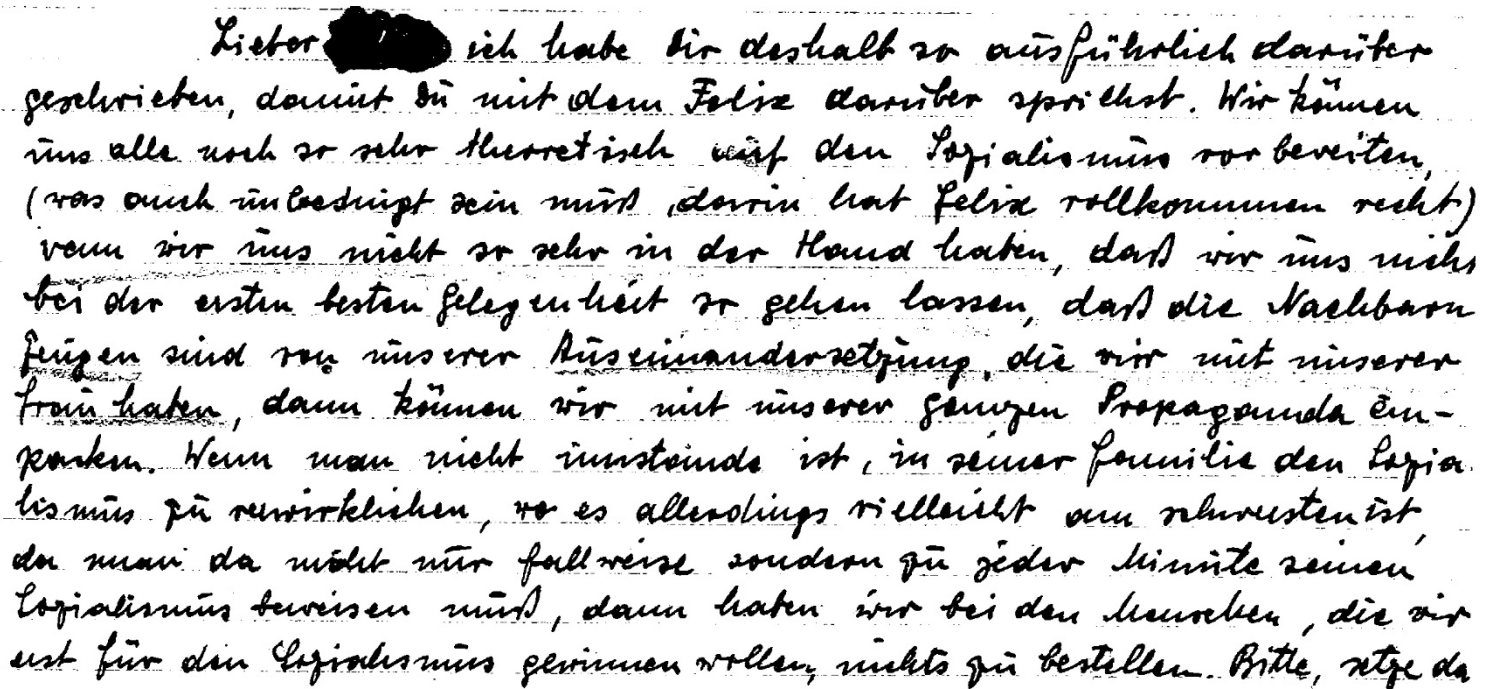 Lieber ich habe dir deshalb so ausführlich darüber
geschrieben, damit Du mit dem Felix darüber sprichst. Wir können
uns alle noch so sehr theoretisch auf den Sozialismus vorbereiten,
(was auch unbedingt sein muß, darin hat Felix vollkommen recht)
wenn wir uns nicht so sehr in der Hand haben, daß wir uns nicht
bei der ersten besten Gelegenheit so gehen lassen, daß die Nachbarn
Zeugen sind von unserer Auseinandersetzung, die wir mit unserer
Frau haben, dann können wir mit unserer ganzen Propaganda ein-
packen. Wenn man nicht imstande ist, in seiner Familie den Sozia-
lismus zu verwirklichen, wo es allerdings vielleicht am schwersten ist,
da man da nicht nur fallweise sondern zu jeder Minute seinen
Sozialismus beweisen muß, dann haben wir bei den Menschen, die wir
erst für den Sozialismus gewinnen wollen, nichts zu bestellen. Bitte, setze da